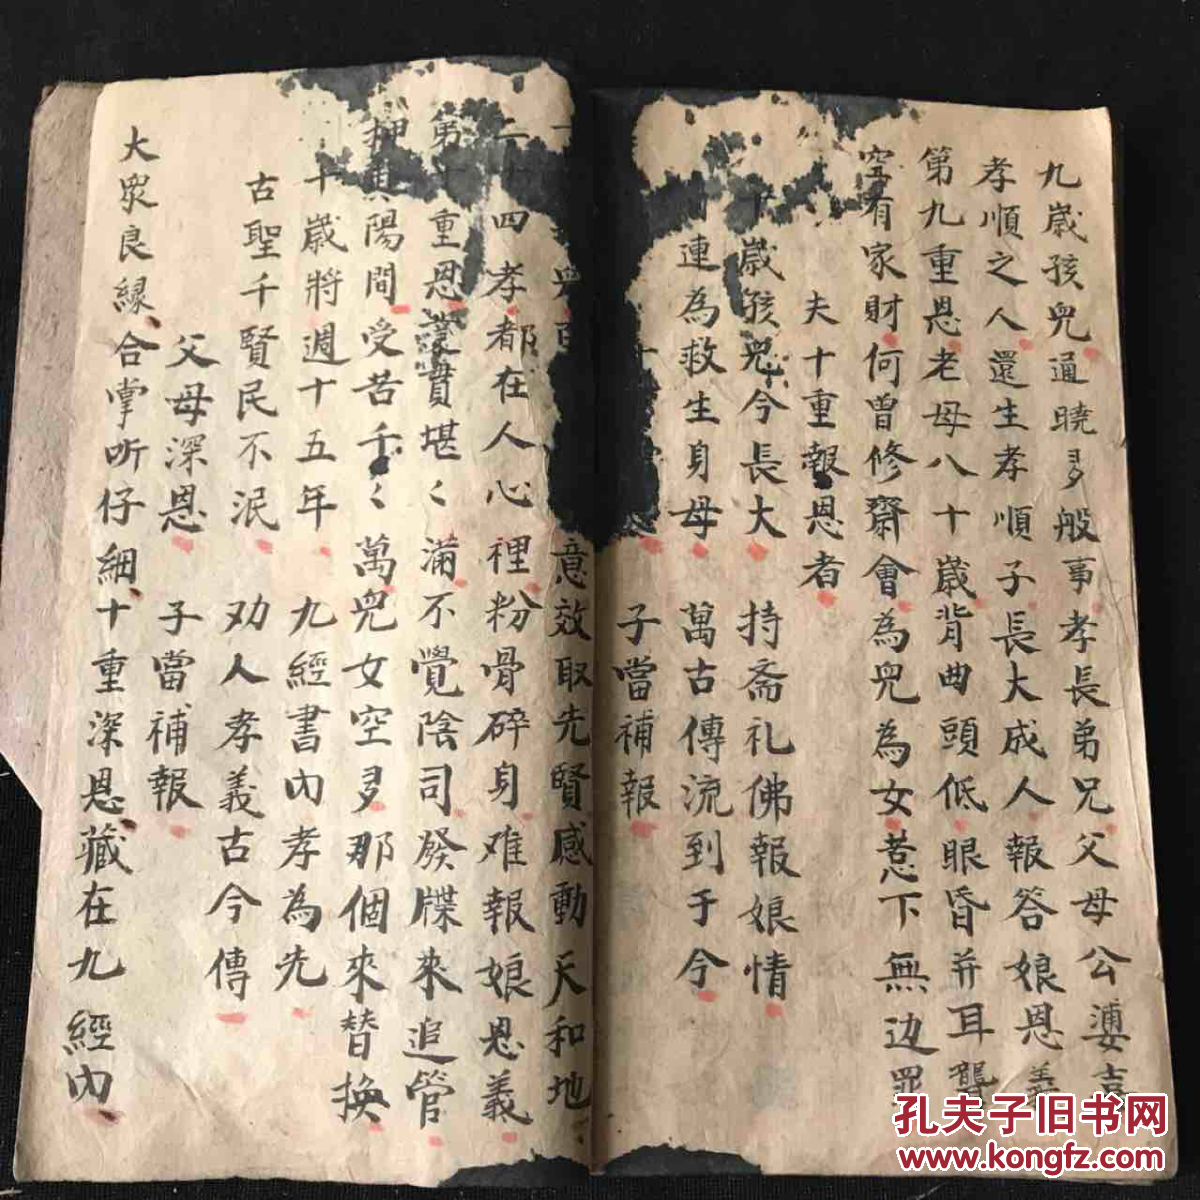 九歲孩兒通曉多般事孝長弟兄父母公婆喜
孝順之人還生孝順子長大成人報答娘恩義
第九重恩老母八十歲背曲頭低眼昏并耳聾
空有家財何曾修齋會為兒為女惹下無边罪
夫十重報恩者
十歲孩兒今長大 持斋礼佛報娘情
連為救生身母 萬古傳流到于今
恩 子當補報
意效取先賢感動天和地
二十四孝都在人心裡粉骨碎身难報娘恩義
第十重恩貫堪〻滿不覺陰司發牒來追管
押陽間受苦千〻萬兒女空多那個來替換
十歲將週十五年 九經書內孝為先
古聖千賢民不泯 劝人孝義古今傳
父母深恩 子當補報
大眾良緣合掌听仔細十重深恩藏在九經內
孔夫子旧书网
www.kongfz.com